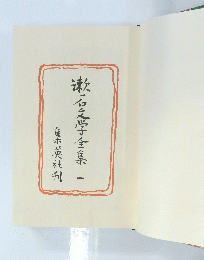 漱石文学全集 一
集英社刊